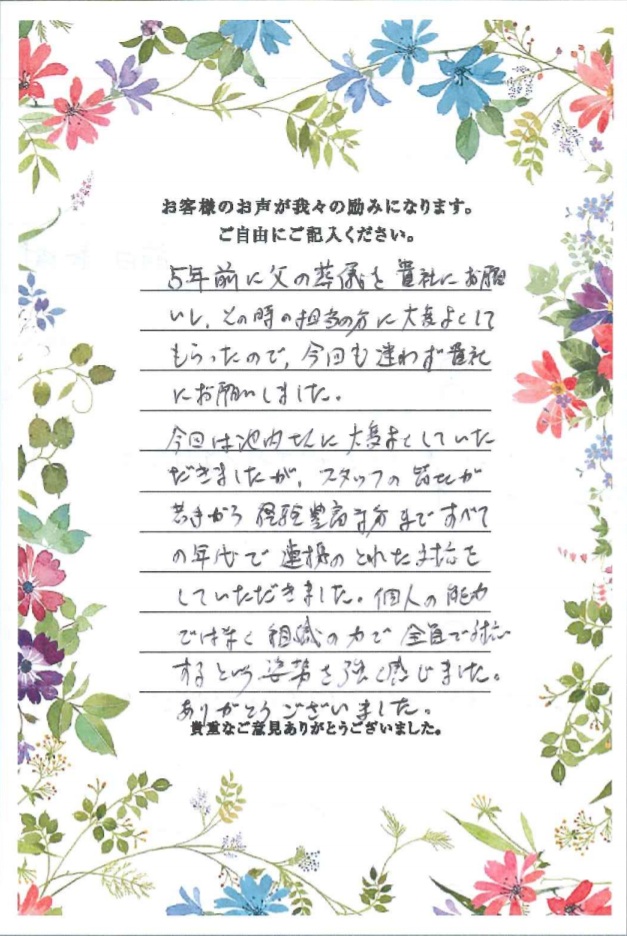 お客様のお声が我々の励みになります。
ご自由にご記入ください。
5年前に父の葬儀を貴社にお願
いし、その時の担当の方に大変よくして
もらったので、今回も迷わず貴社
にお願いしました。
今回は池内さんに大変よくしていた
だきましたが、スタッフの皆さんが
若手から経験豊富な方まですべて
の年代で連携のとれた対応を
していただきました。個人の能力
ではなく組織の力で全員で対応
するという姿勢を強く感じました。
ありがとうございました。
貴重なご意見ありがとうございました。